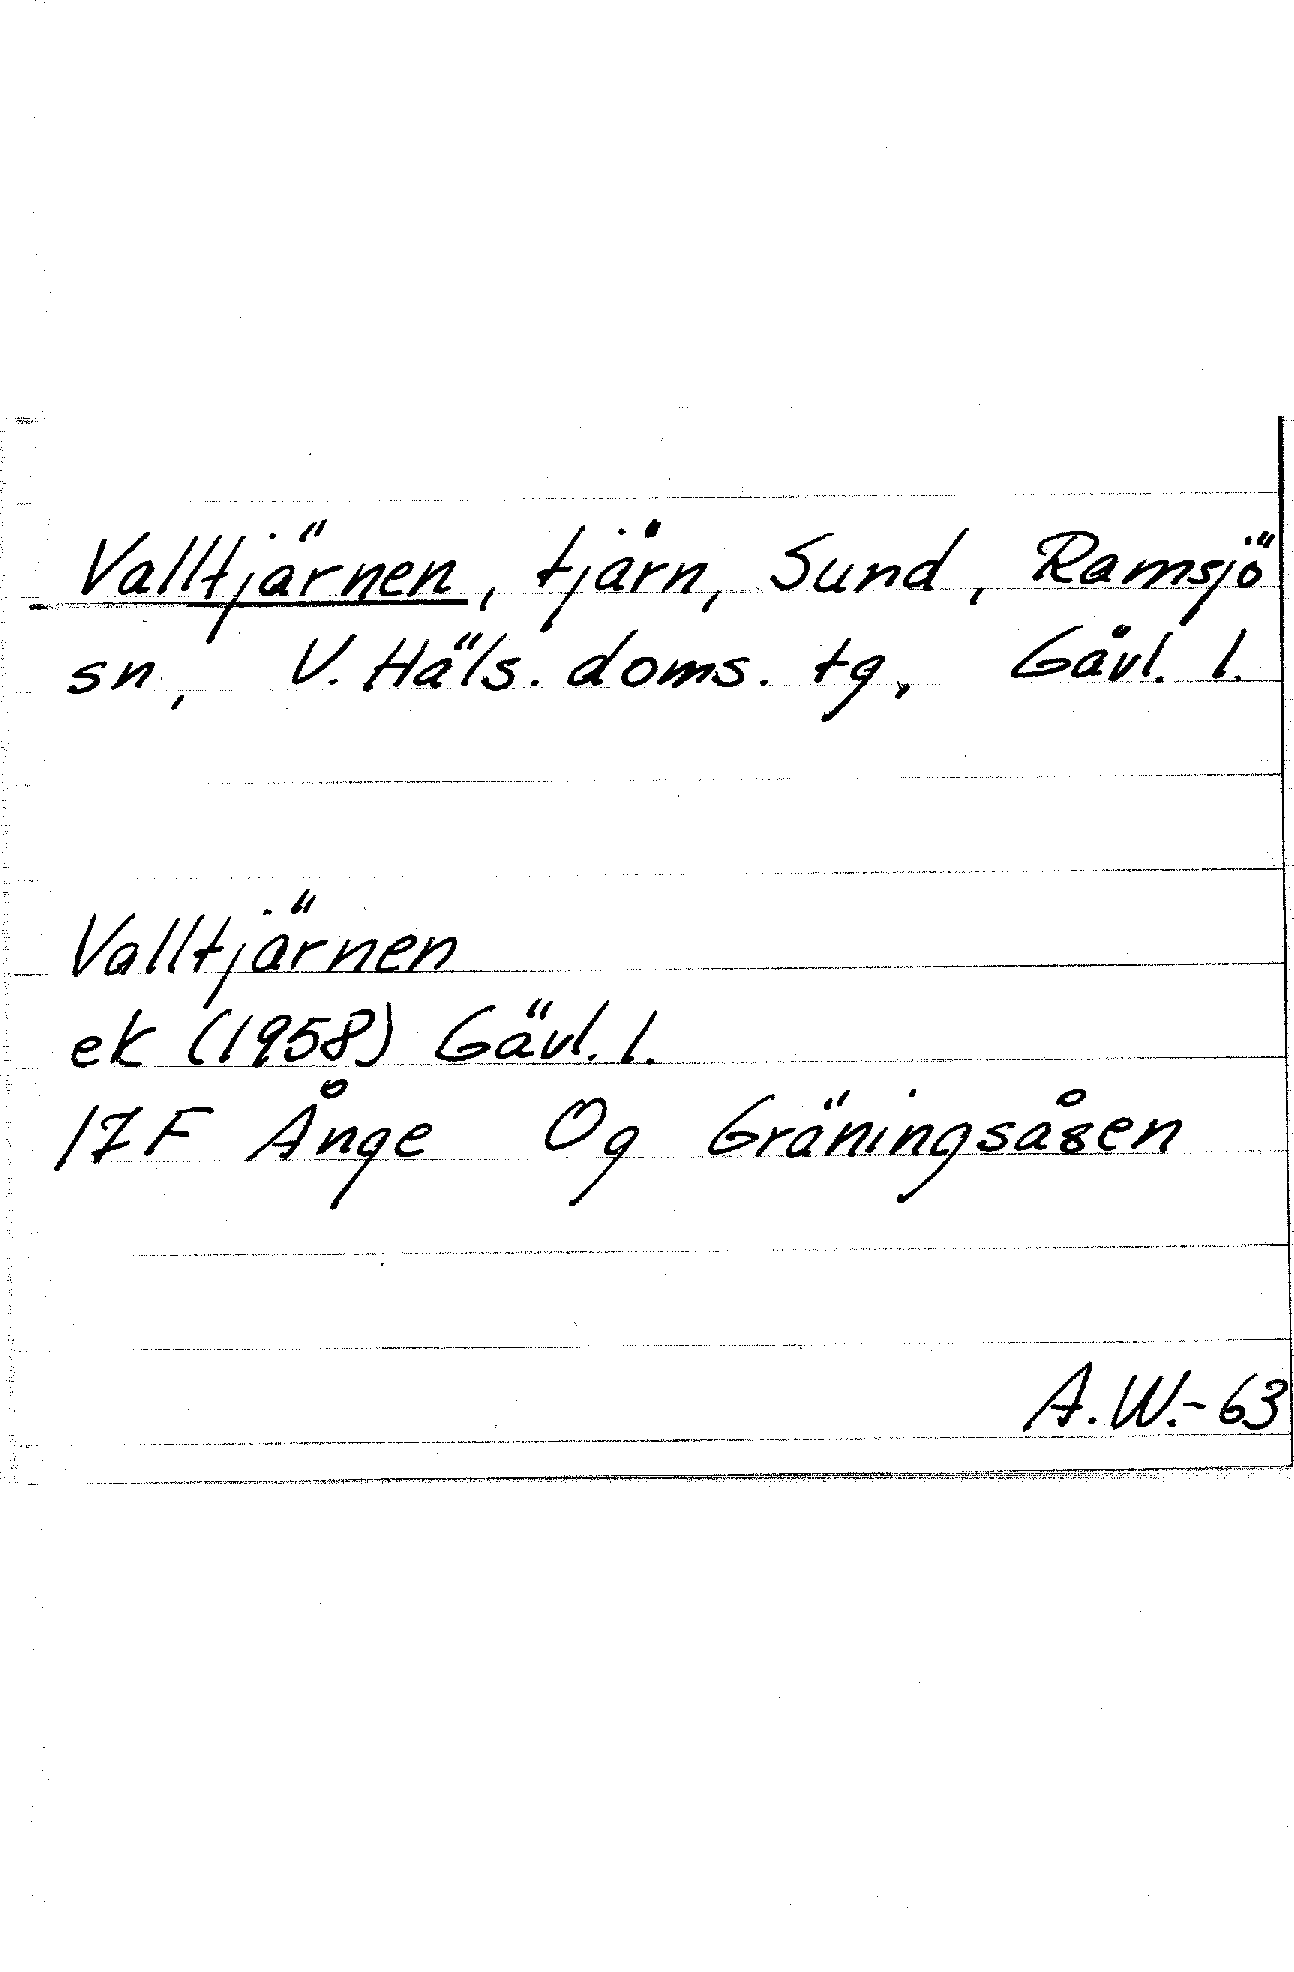 Valltjärnen, tjärn, Sund, Ramsjö
sn, V. Häls. doms. tg, Gävl. l.
Valltjärnen
ek (1958) Gävl. l.
17F Ånge Og Gräningsåsen
A.W.-63